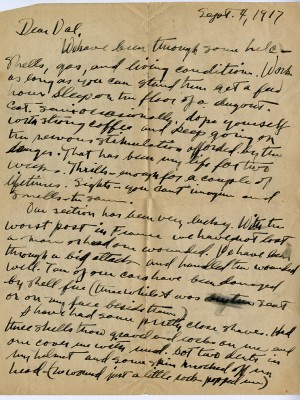 Sept. 4, 1917
Dear Dal.
We have been through some hell-
shells, gas, and living conditions. Work
as long as you can stand then get a few
hours sleep on the floor of a dugout.
Eat some occasionally, dope yourself
with strong coffee and keep going on
the nervous stimulation afforded by the
danger. That has been my life for two
weeks. Thrills enough for a couple of
lifetimes. Sights you dont imagine and
smells the same.
Our section has been very lucky. With the
worst post in France we have not lost
a man or had one wounded. We have been
through a big attack and handled the wounded
well. Ten of our cars have been damaged
by shell fire (one while I was seat
or on my face beside them)
I have had some pretty close shaves. Had
three shells throw gravel and rocks on me and
one cover me with mud. Got two dents in
my helmet and some skin knocked off my
head. (no wound just a little rock me)